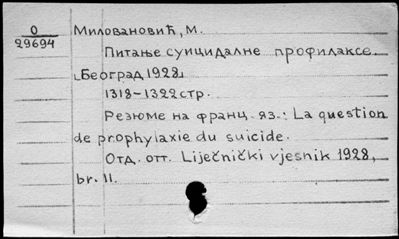 О
29694
Миловановић, М.
Питање суицидалне профилаксе.
[Београд 1928]
1318-1322 стр.
Резюме на франц. яз.: La question
de prophylaxie du suicide.
Отд. отт. Liječnički vjesnik 1928,
br. 11.